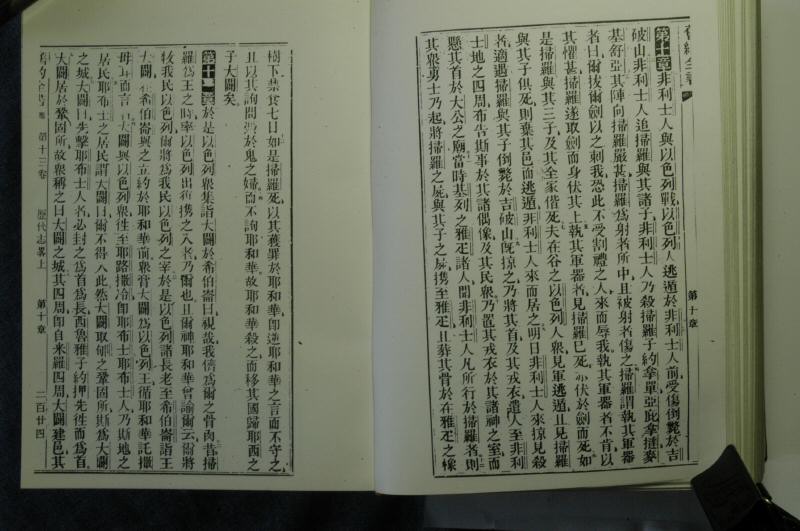 舊約全書
第十章
第十章非利士人與以色列戰以色列人逃遁於非利士人前受傷倒斃於吉
破山非利士人追掃羅與其諸子非利士人乃殺掃羅子約拿單亞庇拿撻麥
基舒亞其陣向掃羅嚴甚掃羅為射者所中且被射者傷之掃羅謂執其軍器
者曰爾拔爾劍以之刺我恐此不受割禮之人來而辱我執其軍器者不肯以
其懼甚掃羅遂取劍而身伏其上執其軍器者見掃羅已死亦伏於劍而死如
是掃羅與其三子及其全家偕死夫在谷之以色列人眾見軍逃遁且見掃羅
與其子俱死則棄其邑而逃遁非利士人來而居之明日非利士人來掠見殺
者適遇掃羅與其子倒斃於吉破山既掠之乃將其首及其戎衣遣人至非利
士地之四周布告斯事於其諸偶像及其民眾乃置其戎衣於其諸神之室而
懸其首於大公之廟當時基列之雅疋諸人聞非利士人凡所行於掃羅者則
其眾勇士乃起將掃羅之屍與其子之屍攜至雅疋且葬其骨於在雅疋之橡
樹下禁食七日如是掃羅死以其獲罪於耶和華卽逆耶和華之言而不守之
且以其詢問憑於鬼之婦而不詢耶和華故耶和華殺之而移其國歸耶西之
子大闢矣
第十一章於是以色列眾集詣大闢於希伯崙曰視哉我儕為爾之骨肉昔掃
羅為王之時率以色列出而攜之入者乃爾也且爾神耶和華曾諭爾云爾將
牧我民以色列爾將為我民以色列之宰於是以色列諸長老至希伯崙詣王
大闢在希伯崙與之立約於耶和華前眾膏大闢為以色列王循耶和華託撒
母耳而言大闢與以色列眾往至耶路撒冷卽耶布士耶布士人乃斯地之
居民耶布士之居民謂大闢曰爾不得入此然大闢取郇之鞏固所斯為大闢
之城大闢曰先擊耶布士人者必封之為首為長西魯雅子約押先往而為首
大闢居於鞏固所故眾稱之曰大闢之城其四周卽自米羅四周大闢建邑其
第十三卷 歷代志畧上 第十章 二百廿四